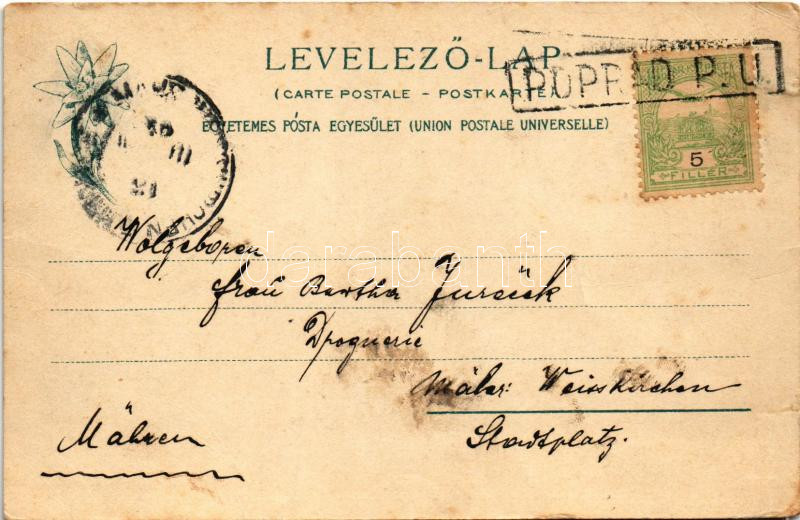 LEVELEZŐ-LAP
(CARTE POSTALE – POSTKARTE)
EGYETEMES PÓSTA EGYESÜLET (UNION POSTALE UNIVERSELLE)
POPRÁD P. U.
5
FILLÉR
Wolgeboren
frau Bertha Jureček
Droguerie
Mähr: Weisskirchen
Stadtplatz.
Mähren
darabanth